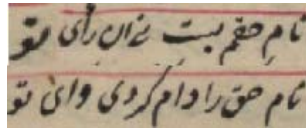 نام حقم بست نے ان رای تو
نام حق را دام کردی وای تو